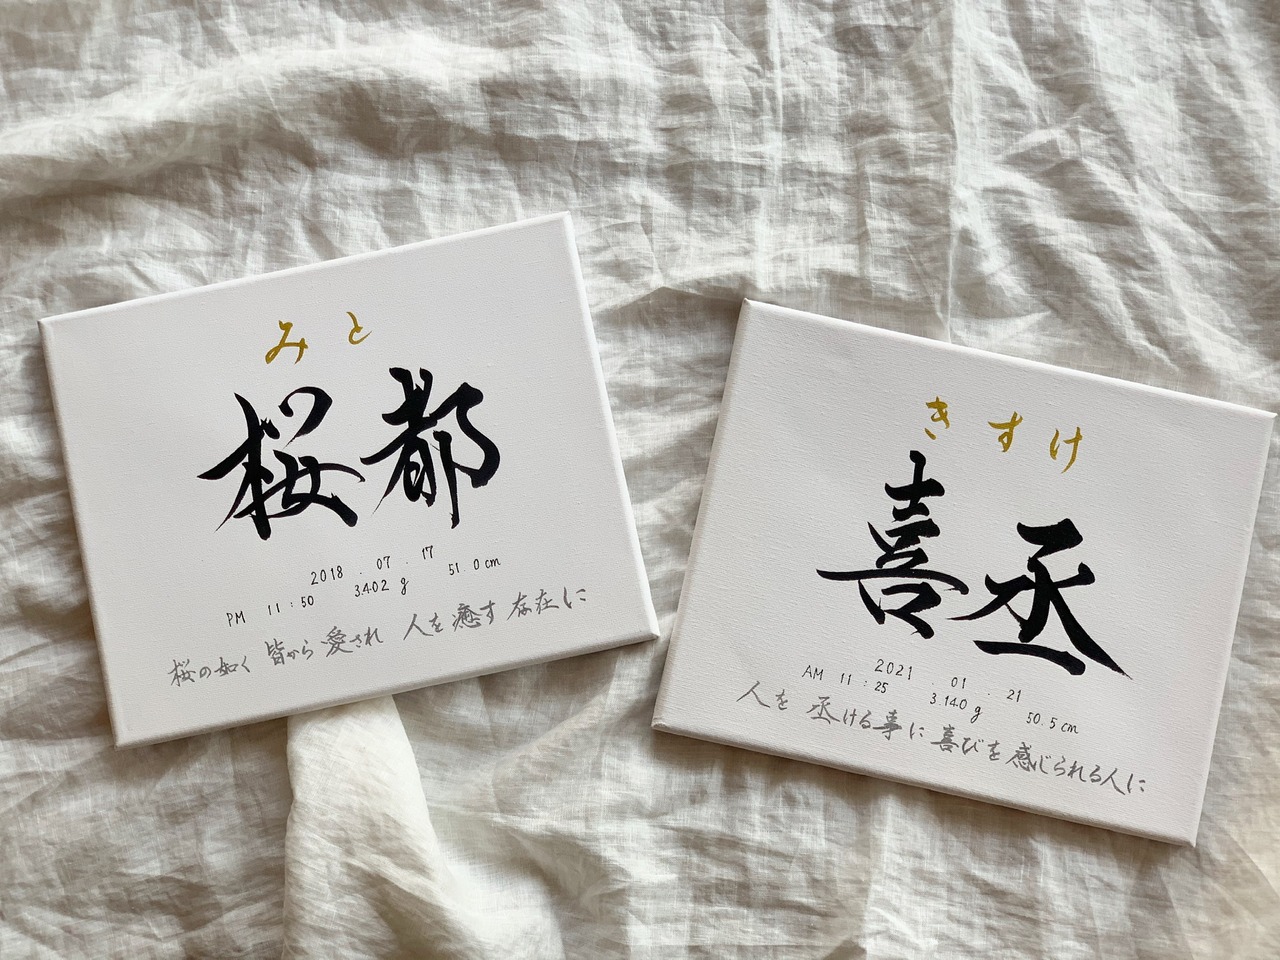 みと
桜都
2018 . 07 . 17
PM 11:50 3402 g 51.0cm
桜の如く 皆から愛され 人を癒す存在に
きすけ
喜丞
2021 . 01 . 21
AM 11:25 3.140 g 50.5cm
人を丞ける事に喜びを感じられる人に